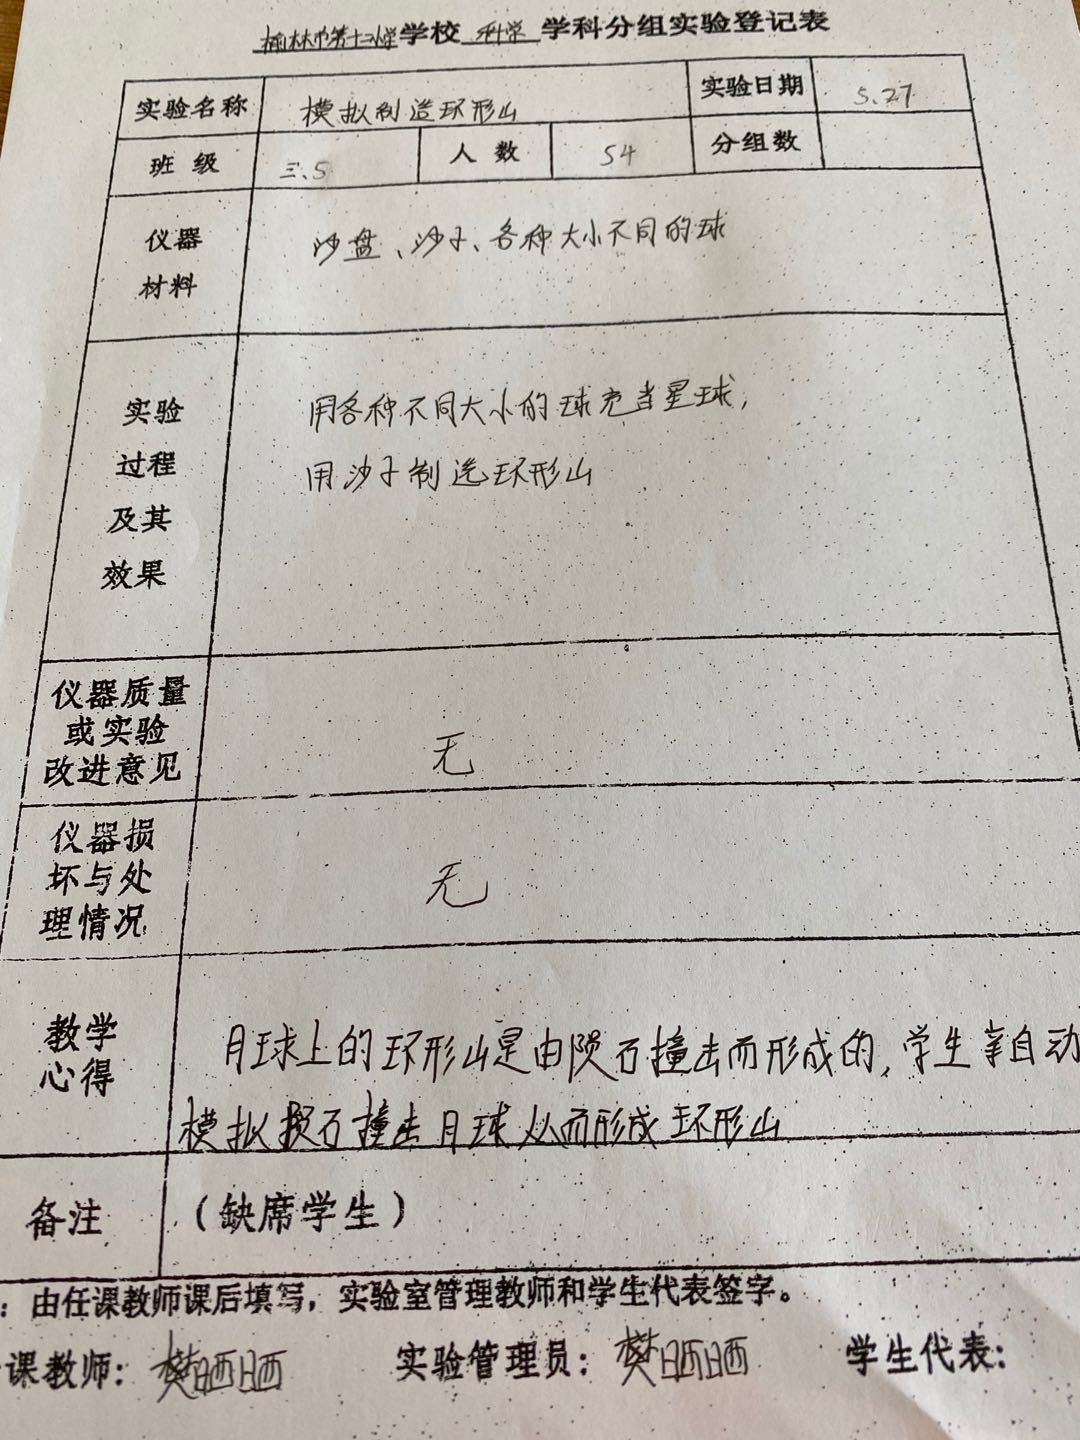 榆林市第十二小学学校 科学 学科分组实验登记表
实验名称 模拟制造环形山 实验日期 5.27
班级 三.5 人数 54 分组数
仪器
材料
沙盘、沙子、各种大小不同的球
实验
过程
及其
效果
用各种不同大小的球充当星球,
用沙子制造环形山
仪器质量
或实验
改进意见
无
仪器损
坏与处
理情况
无
教学
心得
月球上的环形山是由陨石撞击而形成的,学生亲自动
模拟陨石撞击月球从而形成环形山
备注 (缺席学生)
:由任课教师课后填写,实验室管理教师和学生代表签字。
课教师:樊晒晒 实验管理员:樊晒晒 学生代表: